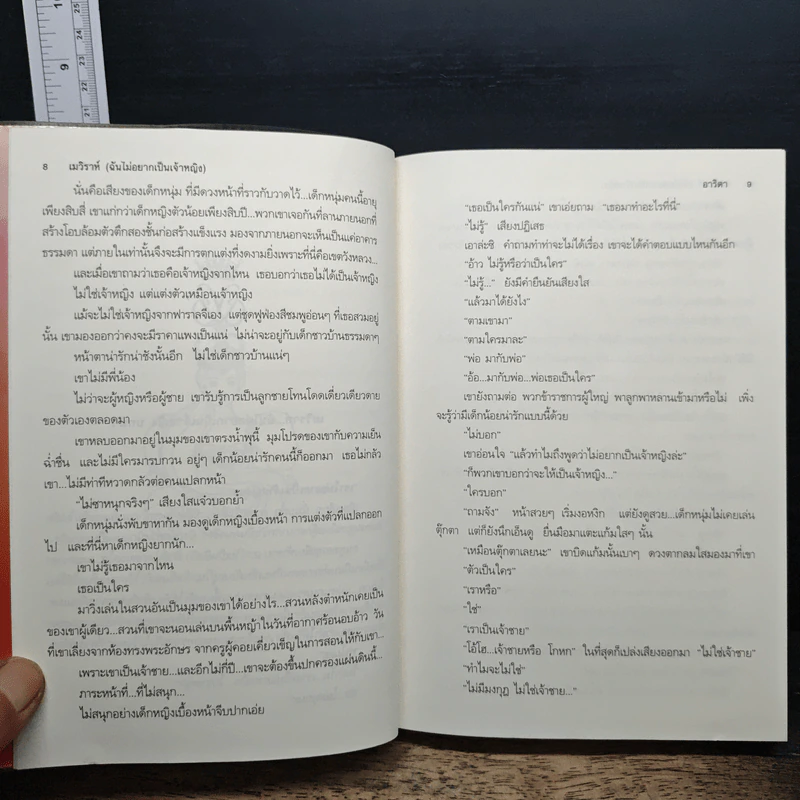 8 เมวิราห์ (ฉันไม่อยากเป็นเจ้าหญิง)
นั่นคือเสียงของเด็กหนุ่ม ที่มีดวงหน้าที่ราวกับวาดไว้...เด็กหนุ่มคนนี้อายุ
เพียงสิบสี่ เขาแก่กว่าเด็กหญิงตัวน้อยเพียงสิบปี...พวกเขาเจอกันที่ลานภายนอกที่
สร้างโอบล้อมตัวตึกสองชั้นก่อสร้างแข็งแรง มองจากภายนอกจะเห็นเป็นแค่อาคาร
ธรรมดา แต่ภายในเท่านั้นจึงจะมีการตกแต่งที่งดงามยิ่งเพราะที่นี่คือเขตวังหลวง...
และเมื่อเขาถามว่าเธอคือเจ้าหญิงจากไหน เธอบอกว่าเธอไม่ได้เป็นเจ้าหญิง
ไม่ใช่เจ้าหญิง แต่แต่งตัวเหมือนเจ้าหญิง
แม้จะไม่ใช่เจ้าหญิงจากฟาราลจีเอง แต่ชุดฟูฟ่องสีชมพูอ่อนๆ ที่เธอสวมอยู่
นั้น เขามองออกว่าคงจะมีราคาแพงเป็นแน่ ไม่น่าจะอยู่กับเด็กชาวบ้านธรรมดาๆ
หน้าตาน่ารักน่าชังนั้นอีก ไม่ใช่เด็กชาวบ้านแน่ๆ
เขาไม่มีพี่น้อง
ไม่ว่าจะผู้หญิงหรือผู้ชาย เขารับรู้การเป็นลูกชายโทนโดดเดี่ยวเดียวดาย
ของตัวเองตลอดมา
เขาหลบออกมาอยู่ในมุมของเขาตรงน้ำพุนี้ มุมโปรดของเขากับความเย็น
ฉ่ำชื่น และไม่มีใครมารบกวน อยู่ๆ เด็กน้อยน่ารักคนนี้ก็ออกมา เธอไม่กลัว
เขา...ไม่มีท่าทีหวาดกลัวต่อคนแปลกหน้า
"ไม่ซาหนุกจริงๆ" เสียงใสแจ๋วบอกย้ำ
เด็กหนุ่มนั่งพับขาหากัน มองดูเด็กหญิงเบื้องหน้า การแต่งตัวที่แปลกออก
ไป และที่นี่หาเด็กหญิงยากนัก...
เขาไม่รู้เธอมาจากไหน
เธอเป็นใคร
มาวิ่งเล่นในสวนอันเป็นมุมของเขาได้อย่างไร...สวนหลังตำหนักเคยเป็น
ของเขาผู้เดียว...สวนที่เขาจะนอนเล่นบนพื้นหญ้าในวันที่อากาศร้อนอบอ้าว วัน
ที่เขาเลี่ยงจากห้องทรงพระอักษร จากครูผู้คอยเคี่ยวเข็ญในการสอนให้กับเขา...
เพราะเขาเป็นเจ้าชาย...และอีกไม่กี่ปี...เขาจะต้องขึ้นปกครองแผ่นดินนี้...
ภาระหน้าที่...ที่ไม่สนุก...
ไม่สนุกอย่างเด็กหญิงเบื้องหน้าจีบปากเอ่ย
อาริตา 9
"เธอเป็นใครกันแน่" เขาเอ่ยถาม "เธอมาทำอะไรที่นี่"
"ไม่รู้" เสียงปฏิเสธ
เอาล่ะซิ คำถามทำท่าจะไม่ได้เรื่อง เขาจะได้คำตอบแบบไหนกันอีก
"อ้าว ไม่รู้หรือว่าเป็นใคร"
"ไม่รู้..." ยังมีคำยืนยันเสียงใส
"แล้วมาได้ยังไง"
"ตามเขามา"
"ตามใครมาละ"
"พ่อ มากับพ่อ"
"อ้อ...มากับพ่อ...พ่อเธอเป็นใคร"
เขายังถามต่อ พวกข้าราชการผู้ใหญ่ พาลูกพาหลานเข้ามาหรือไม่ เพิ่ง
จะรู้ว่ามีเด็กน้อยน่ารักแบบนี้ด้วย
"ไม่บอก"
เขาอ่อนใจ "แล้วทำไมถึงพูดว่าไม่อยากเป็นเจ้าหญิงล่ะ"
"ก็พวกเขาบอกว่าจะให้เป็นเจ้าหญิง..."
"ใครบอก"
"ถามจัง" หน้าสวยๆ เริ่มงอหงิก แต่ยังดูสวย...เด็กหนุ่มไม่เคยเล่น
ตุ๊กตา แต่ก็ยังนึกเอ็นดู ยื่นมือมาแตะแก้มใสๆ นั้น
"เหมือนตุ๊กตาเลยนะ" เขาบิดแก้มนั้นเบาๆ ดวงตากลมใสมองมาที่เขา
"ตัวเป็นใคร"
"เราหรือ"
"ใช่"
"เราเป็นเจ้าชาย"
"โอ้โฮ...เจ้าชายหรือ โกหก" ในที่สุดก็เปล่งเสียงออกมา "ไม่ใช่เจ้าชาย"
"ทำไมจะไม่ใช่"
"ไม่มีมงกุฎ ไม่ใช่เจ้าชาย..."
9
25
24
23
22
21